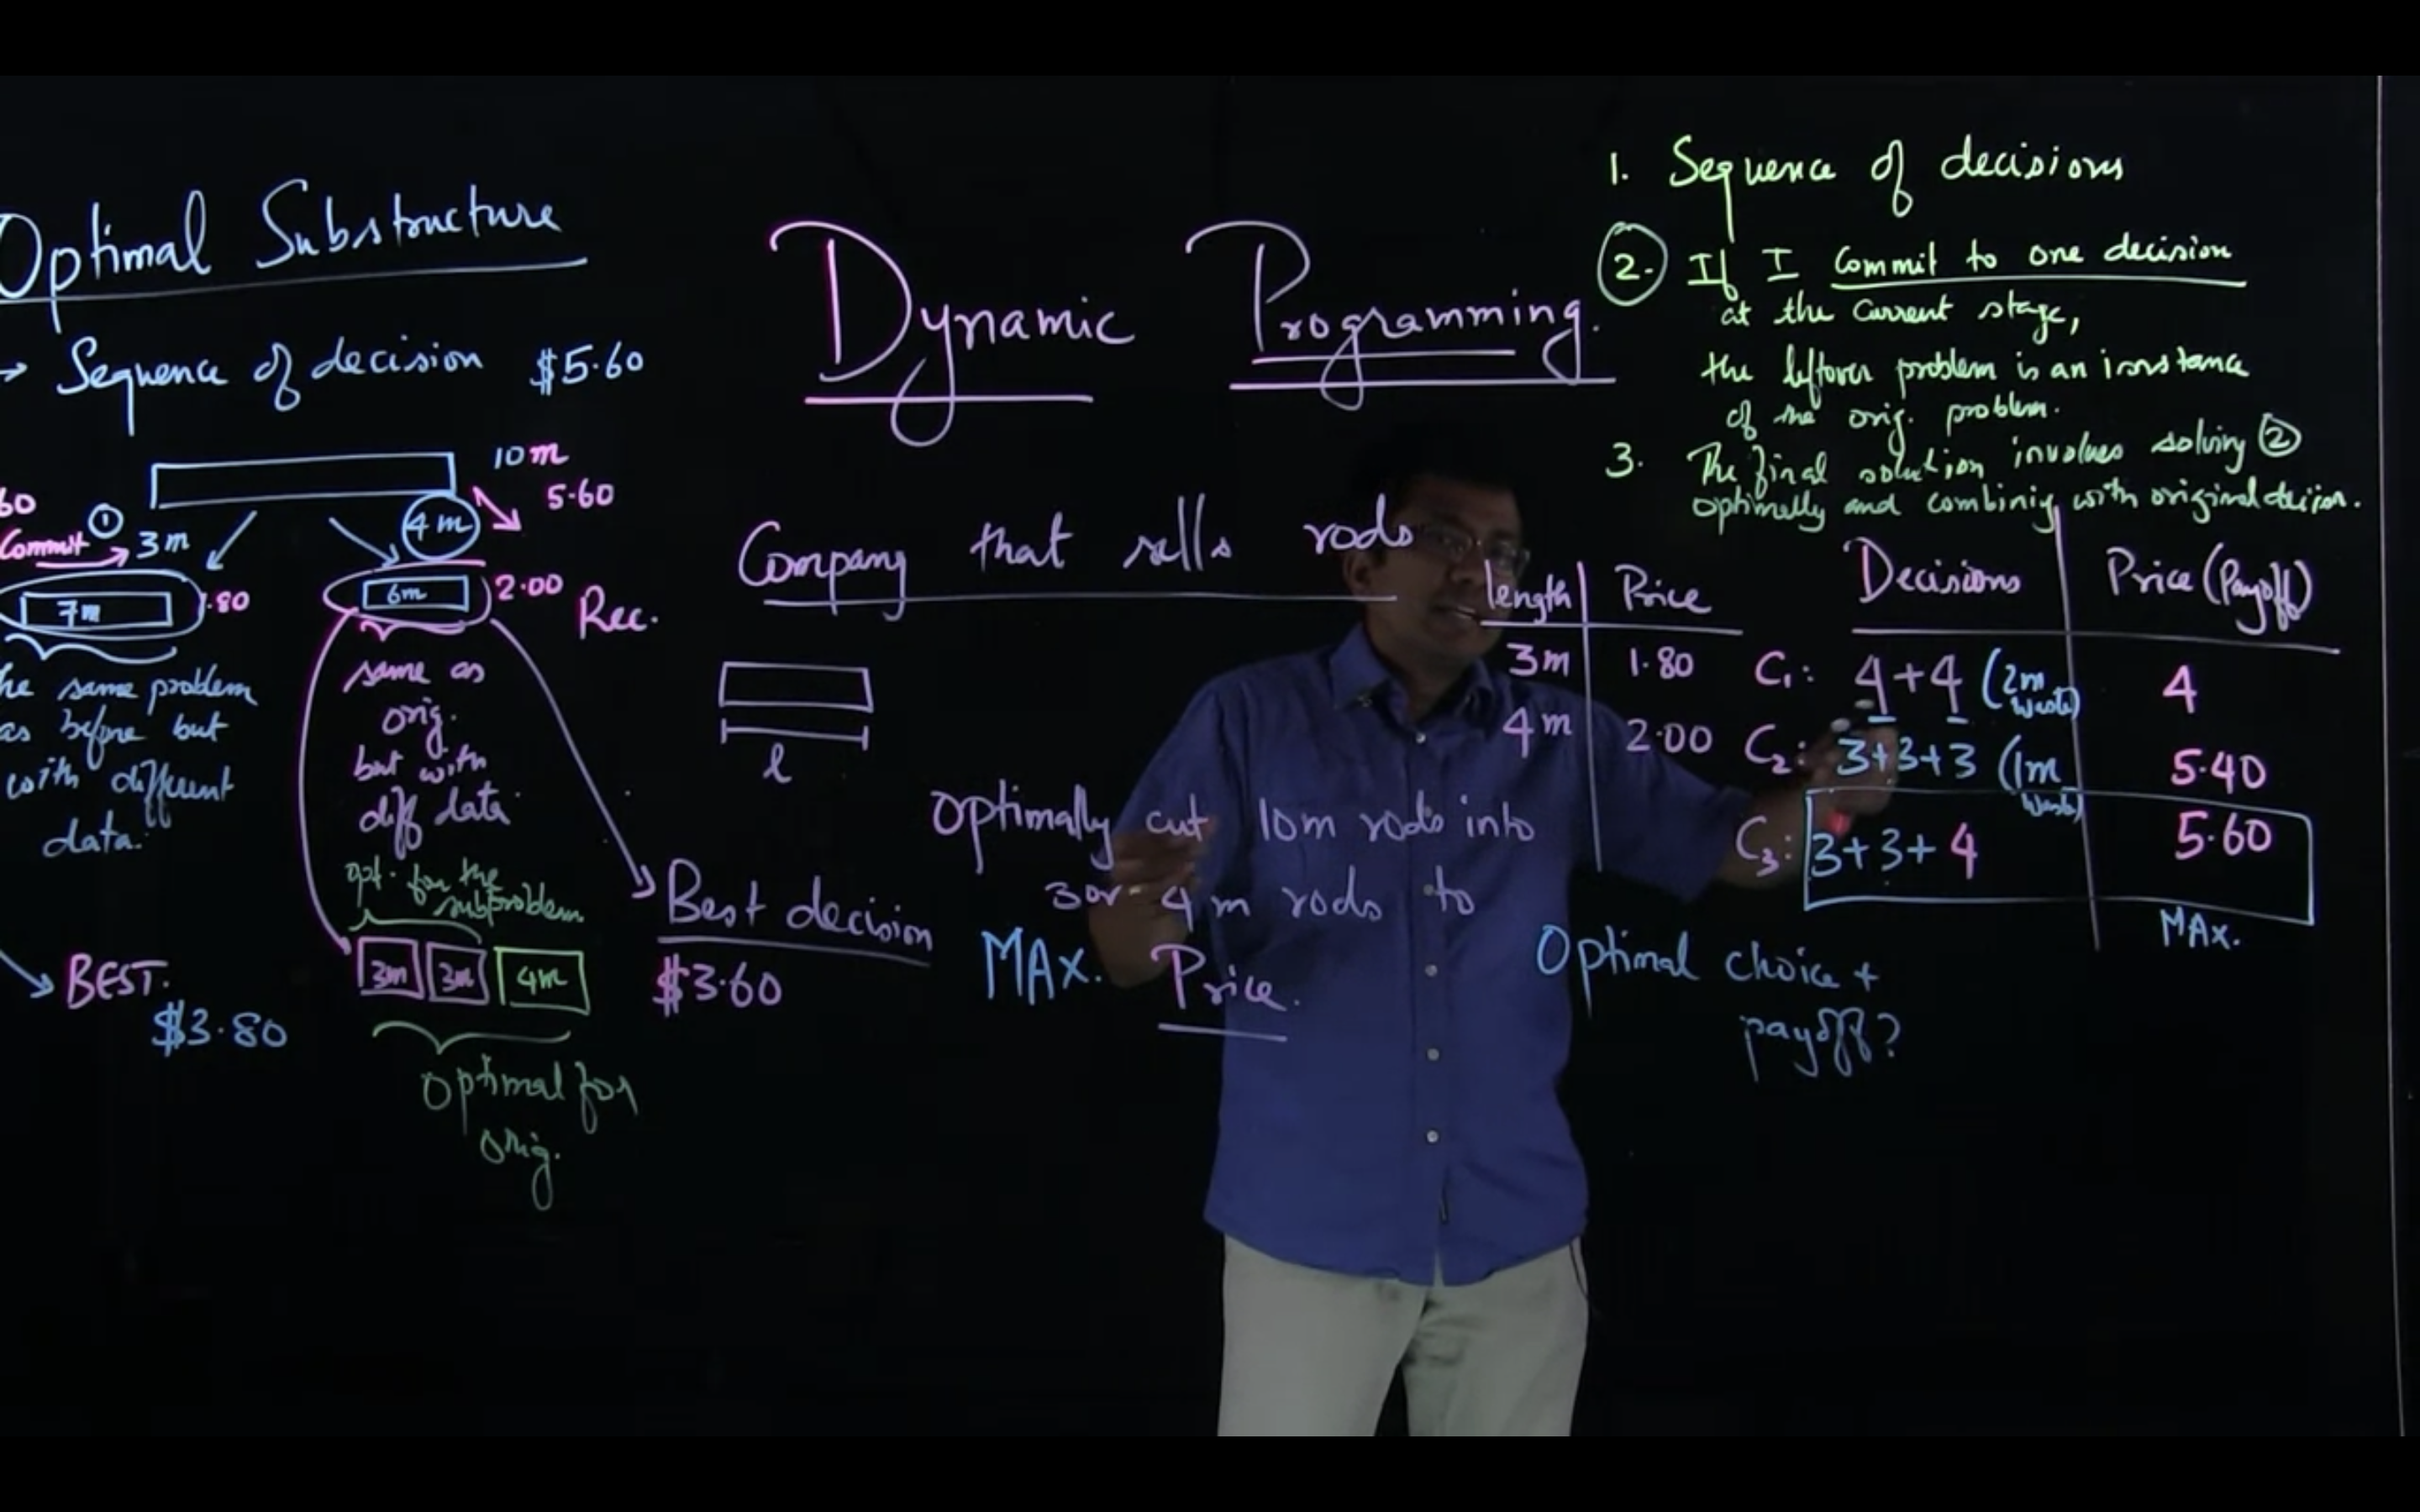 Optimal Substructure
→ Sequence of decision $5.60
10m
5.60
60
Commit → ① 3m
4m
7m
1.80
6m
2.00
Rec.
he same problem
as before but
with different
data.
same as
orig.
but with
diff data
opt. for the
subproblem
3m 3m 4m
Optimal for
orig.
BEST.
$3.80
Best decision
$3.60
Dynamic Programming.
Company that sells rods
l
Optimally cut 10m rods into
3 or 4m rods to
MAX. Price.
1. Sequence of decisions
2. If I Commit to one decision
at the current stage,
the leftover problem is an instance
of the orig. problem.
3. The final solution involves solving ②
optimally and combinig with original decision.
length Price
3m 1.80
4m 2.00
Decisions Price (Payoff)
C₁: 4+4 (2m waste) 4
C₂: 3+3+3 (1m waste) 5.40
C₃: 3+3+4 5.60
MAX.
Optimal choice +
payoff?